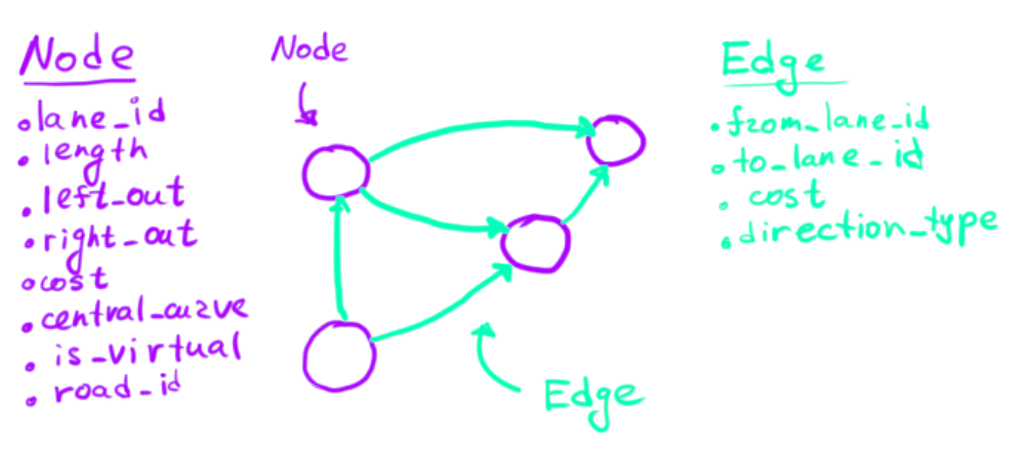 Node
•lane_id
•length
•left_out
•right_out
•cost
•central_curve
•is_virtual
•road_id
Node
Edge
Edge
•from_lane_id
•to_lane_id
•cost
•direction_type